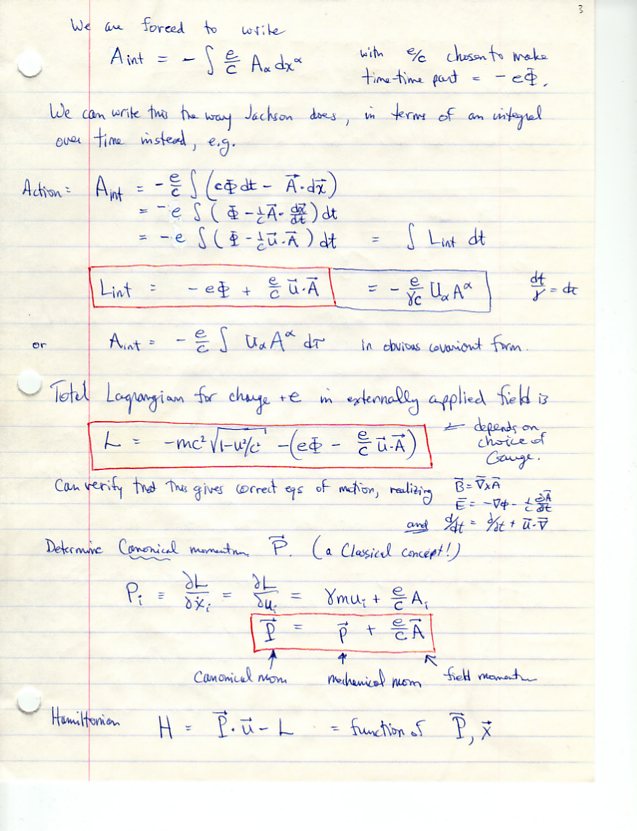 3
We are forced to write
A int = - ∫ e/c Aα dx^α   with e/c chosen to make
time-time part = - eΦ.
We can write this the way Jackson does, in terms of an integral
over time instead, e.g.
Action = Aint = - e/c ∫ (cΦ dt - A⃗·dx⃗)
= - e ∫ ( Φ - 1/c A⃗· dx⃗/dt ) dt
= - e ∫ ( Φ - 1/c u⃗·A⃗ ) dt = ∫ Lint dt
Lint = - eΦ + e/c u⃗·A⃗ = - e/γc Uα A^α   dt/γ = dτ
or Aint = - e/c ∫ Uα A^α dτ in obvious covariant form.
Total Lagrangian for charge +e in externally applied field is
L = -mc² √1-u²/c² - (eΦ - e/c u⃗·A⃗) ← depends on
choice of
Gauge.
Can verify that this gives correct eqs of motion, realizing B⃗ = ∇⃗×A⃗
E⃗ = -∇Φ - 1/c ∂A⃗/∂t
and d/dt = ∂/∂t + u⃗·∇⃗
Determine Canonical momentum P⃗. (a Classical concept!)
Pi ≡ ∂L/∂ẋi = ∂L/∂ui = γmui + e/c Ai
P⃗ = p⃗ + e/c A⃗
Canonical mom   mechanical mom   field momentum
Hamiltonian H = P⃗·u⃗ - L = function of P⃗, x⃗